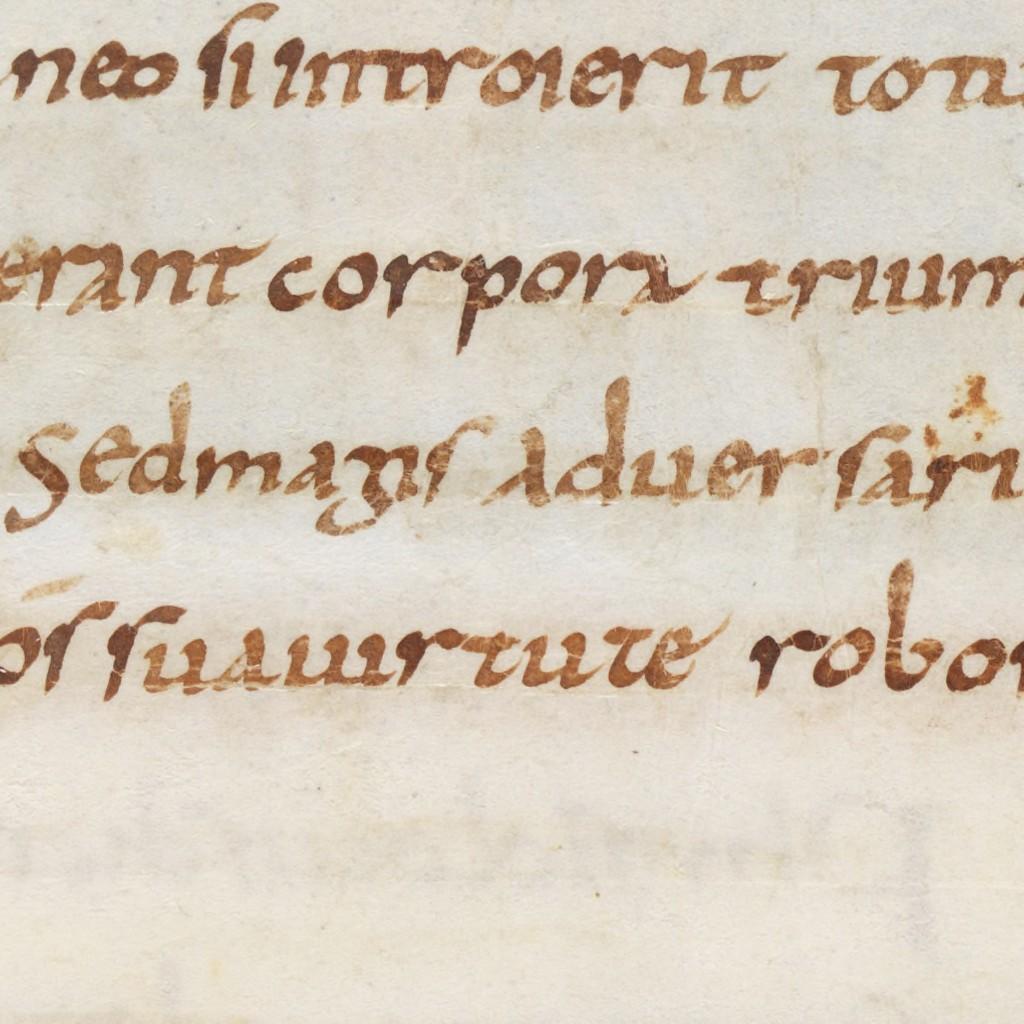 neo si introierit totu
erant corpora trium
Sed magis aduersari
os sua uirtute robor